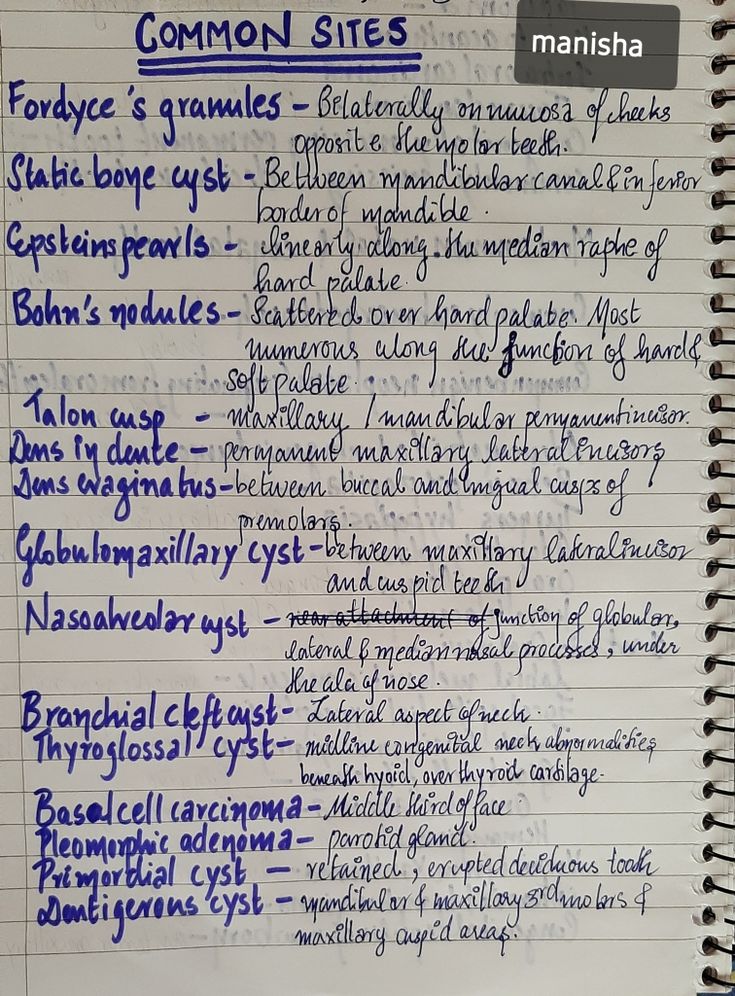 COMMON SITES
manisha
Fordyce's granules - Belaterally on mucosa of cheeks
opposite the molar teeth.
Static bone cyst - Between mandibular canal & inferior
border of mandible.
Epsteins pearls - linearly along the median raphe of
hard palate.
Bohn's nodules - Scattered over hard palate. Most
numerous along the junction of hard &
soft palate.
Talon cusp - maxillary / mandibular permanent incisor.
Dens in dente - permanent maxillary lateral incisors
Dens evaginatus - between buccal and lingual cusps of
premolars.
Globulomaxillary cyst - between maxillary lateral incisor
and cuspid teeth
Nasoalveolar cyst - near attachment of junction of globular,
lateral & median nasal processes, under
the ala of nose.
Branchial cleft cyst - Lateral aspect of neck.
Thyroglossal cyst - midline congenital neck abnormalities
beneath hyoid, over thyroid cartilage.
Basal cell carcinoma - Middle third of face.
Pleomorphic adenoma - parotid gland.
Primordial cyst - retained, erupted deciduous tooth
Dentigerous cyst - mandibular & maxillary 3rd molars &
maxillary cuspid areas.